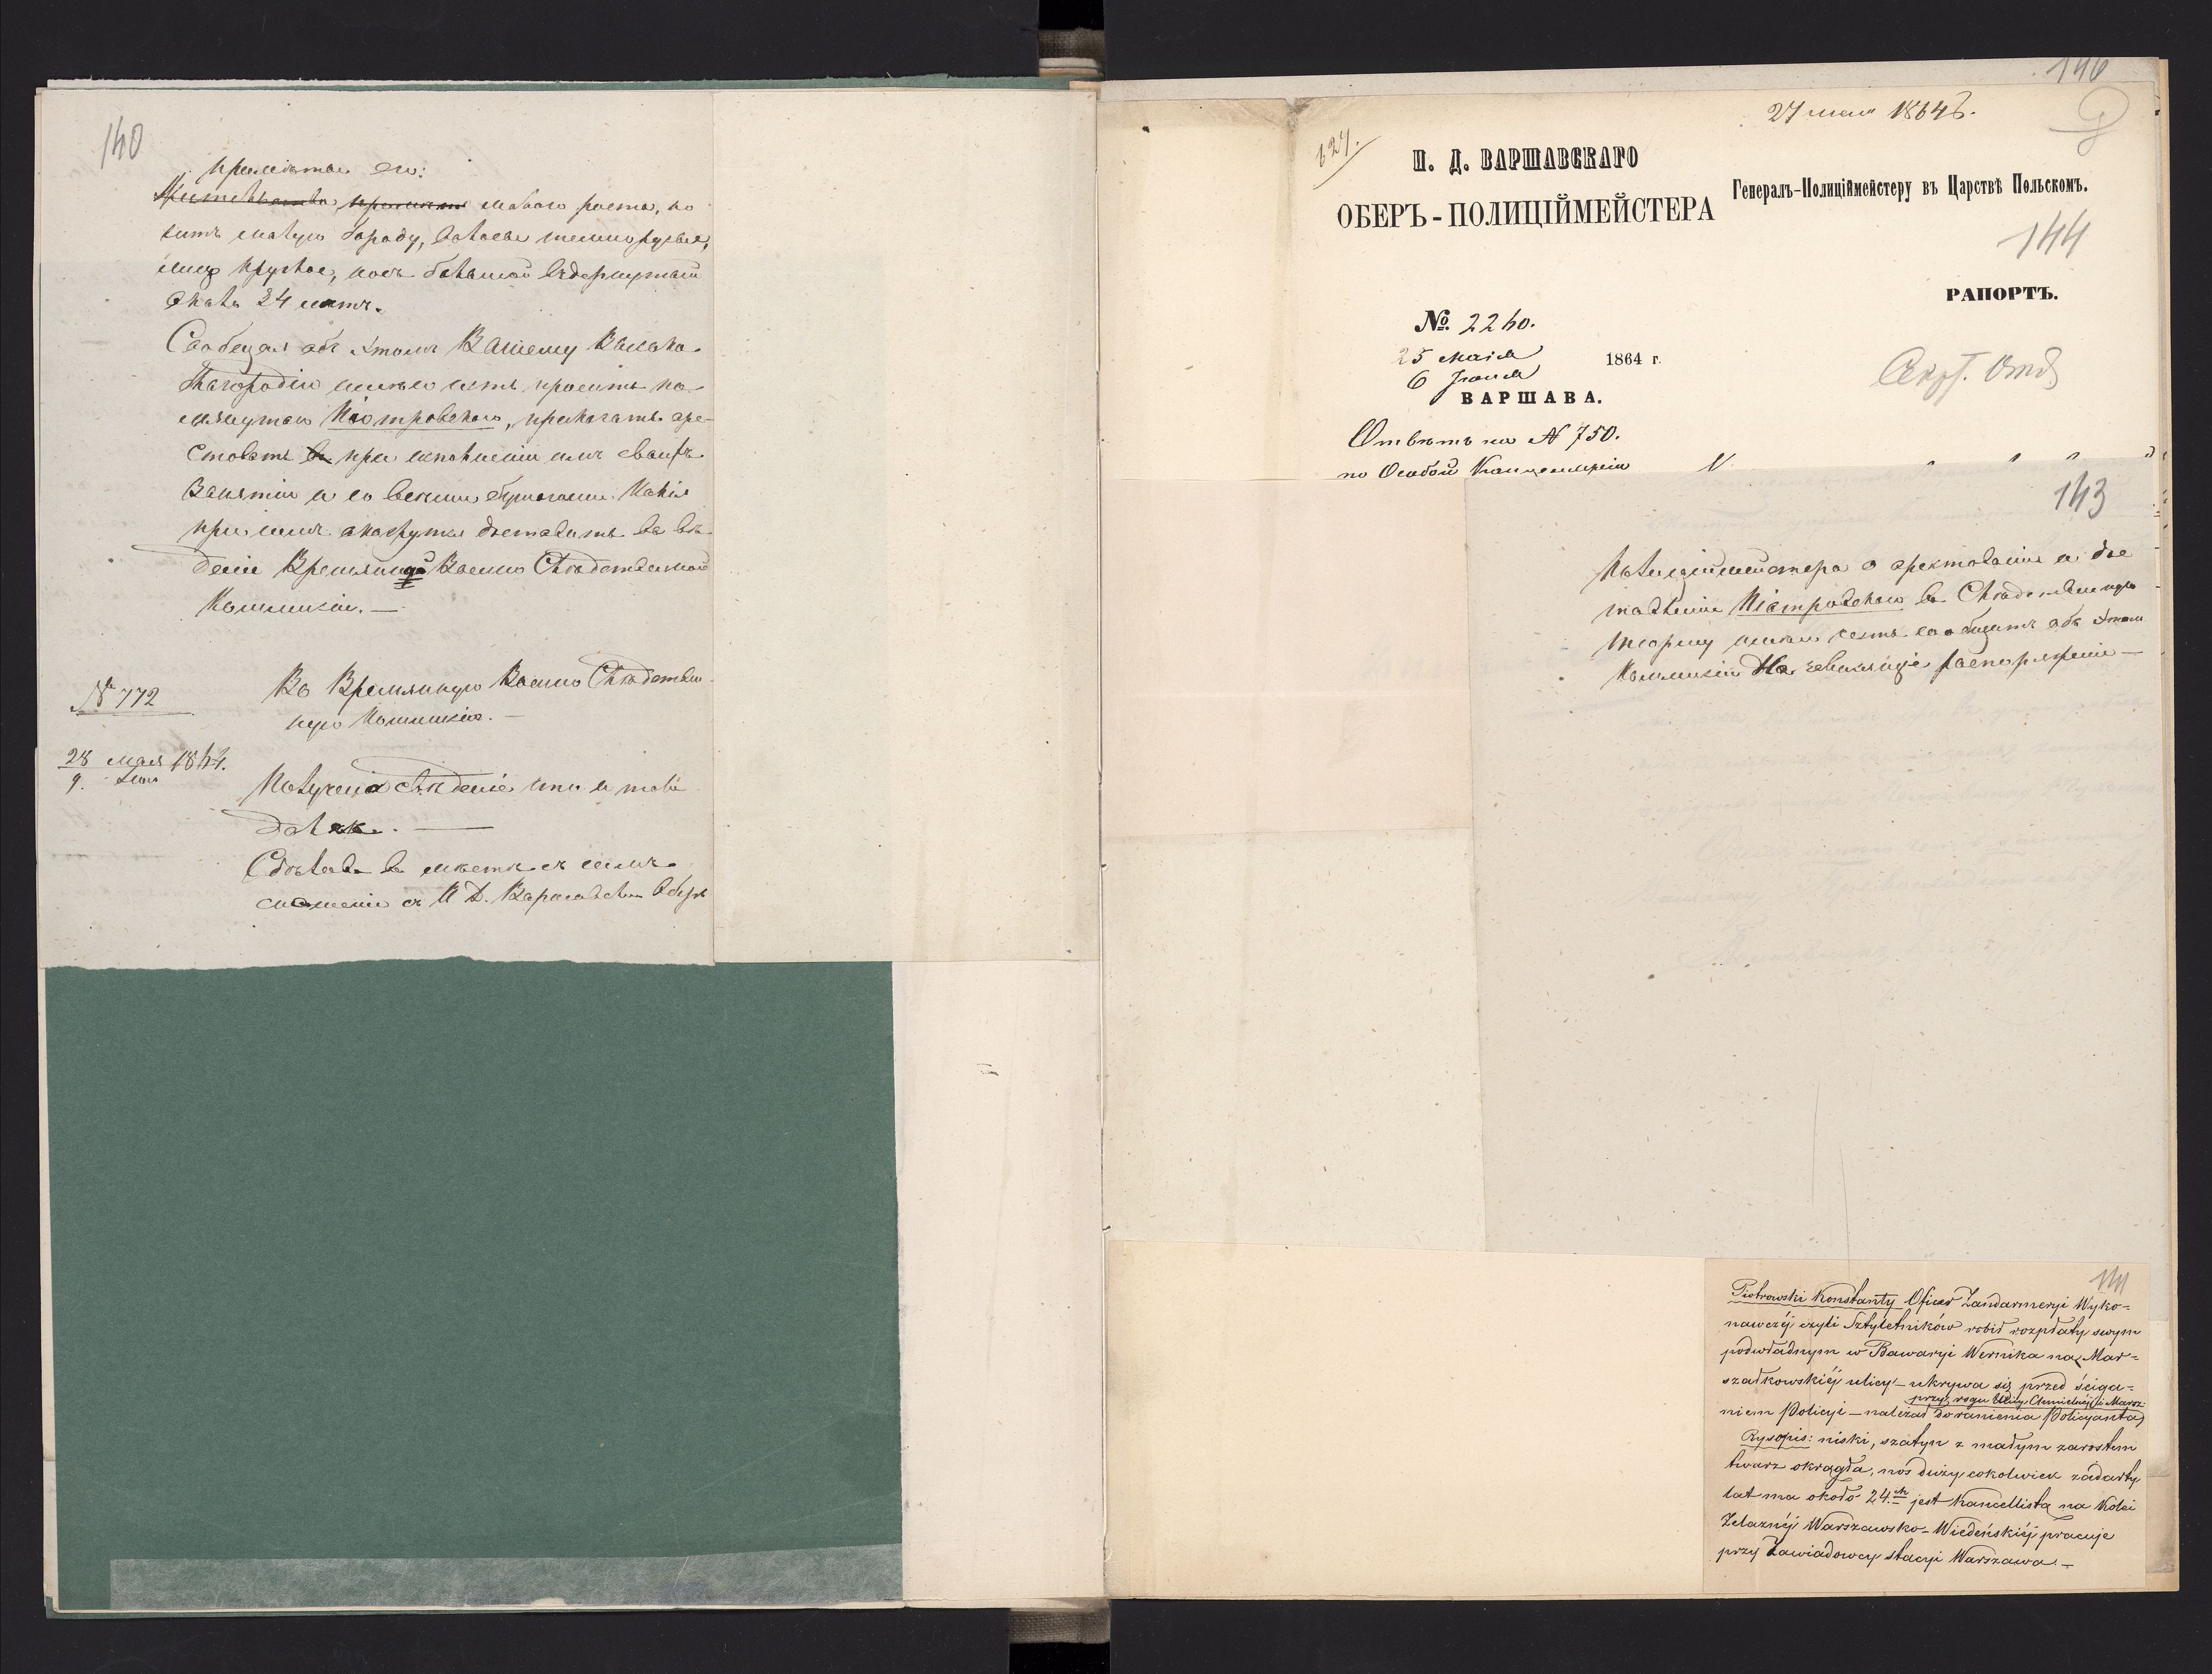 140
приметы его:
малаго роста, но
ситъ малую бороду, волосы темнорусые,
лицо круглое, носъ большой вздернутый
около 24 летъ.
Сообщая объ этомъ Вашему Высоко-
благородію имѣю честь просить по-
мянутаго Піотровскаго, приказать аре-
стовать при исполненіи имъ своихъ
занятій и со всеми бумагами какія
при немъ окажутся доставить въ вѣ-
деніе Временной Военно Следственной
Коммисіи. —
№ 772
Во Временную Военно Следствен-
ную Коммисію. —
28 мая 1864.
9. Іюня
Получено сведеніе что и т.д.
Сделавъ вместе съ симъ
сношеніе съ И. Д. Варшавскаго Оберъ
146
27 мая 1864 г.
627.
И. Д. ВАРШАВСКАГО
ОБЕРЪ-ПОЛИЦІЙМЕЙСТЕРА
Генералъ-Полиціймейстеру въ Царствѣ Польскомъ.
144
РАПОРТЪ.
№ 2260.
25 мая
6 Іюня
1864 г.
ВАРШАВА.
Секр. Отд
Ответъ на № 750.
по Особой Канцеляріи
143
Полиціймейстера о арестованіи и дос
тавленіи Піотровскаго въ Следственную
имею честь сообщить объ этомъ
Коммисіи зависящіе распоряженіе —
141
Piotrowski Konstanty Oficer Żandarmeryi Wyko=
nawczéj czyli Sztyletników robił rozpłaty swym
podwładnym w Bawaryi Wernika na Mar=
szałkowskiéj ulicy – ukrywa się przed ściga=
przy rogu Ulicy Chmielnéj i Marsz:
niem Policyi – należał do ranienia Policyanta)
Rysopis: niski, szatyn z małym zarostem
twarz okrągła, nos duży cokolwiek zadarty
lat ma około 24.ch jest Kancellistą na Kolei
Żelaznéj Warszawsko-Wiedeńskiéj pracuje
przy Zawiadowcy stacyi Warszawa. –